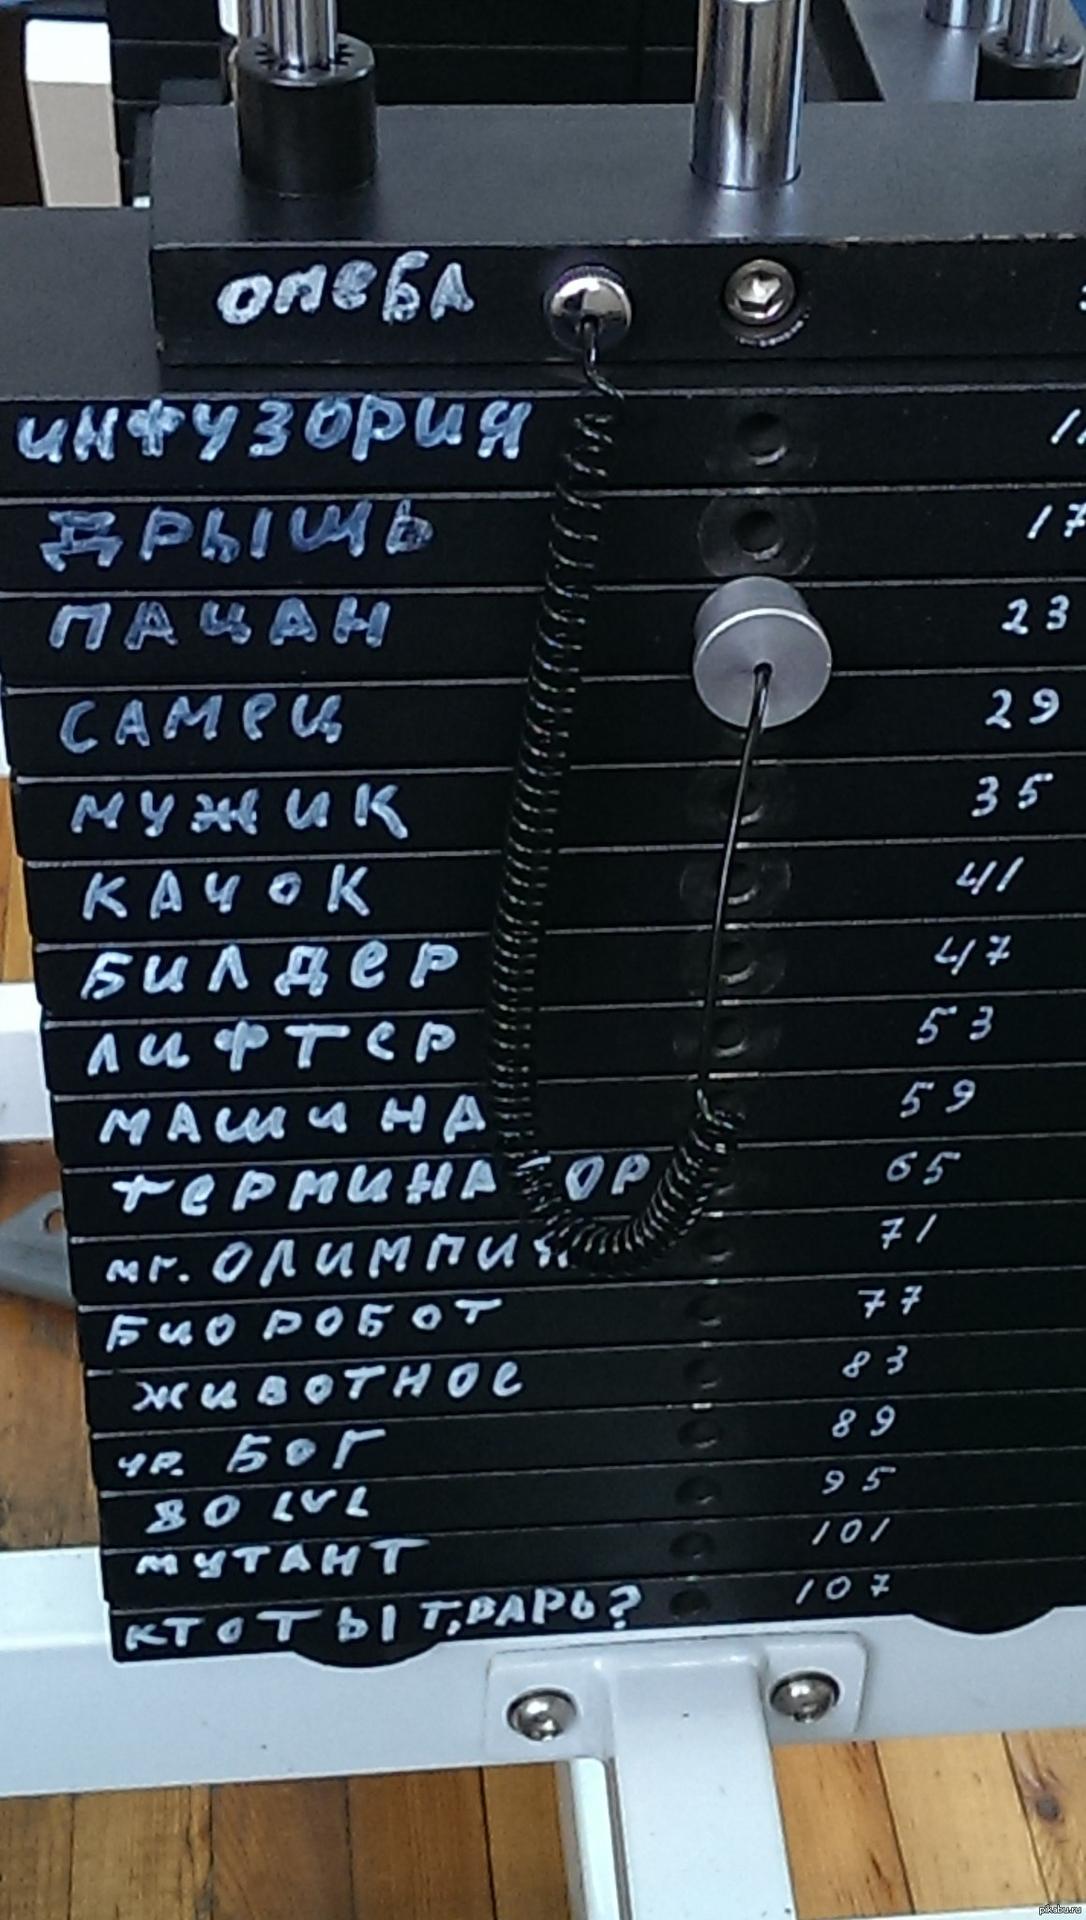 ОМЕБА
ИНФУЗОРИЯ
ДРЫЩЬ 17
ПАЦАН 23
САМЕЦ 29
МУЖИК 35
КАЧОК 41
БИЛДЕР 47
ЛИФТЕР 53
МАШИНА 59
ТЕРМИНАТОР 65
мг. ОЛИМПИЯ 71
БИОРОБОТ 77
ЖИВОТНОЕ 83
УР. БОГ 89
80 LVL 95
МУТАНТ 101
КТО ТЫ Т,ВАРЬ? 107
pikabu.ru